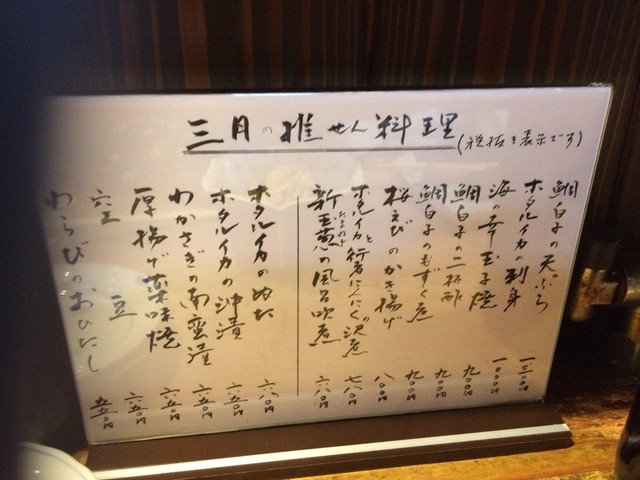 三月の雅せん料理
(税抜き表示です)
鯛白子の天ぷら 一三〇〇円
ホタルイカの刺身 一〇〇〇円
海の幸玉子焼 一〇〇〇円
鯛白子の二杯酢 九〇〇円
鯛白子のもずく煮 九〇〇円
桜えびのかき揚げ 八〇〇円
ホタルイカと行者にんにくの沢煮 七八〇円
新玉葱の風呂吹煮 六八〇円
たまねぎ
ホタルイカのぬた 六八〇円
ホタルイカの沖漬 六五〇円
わかさぎの南蛮漬 六五〇円
厚揚げ薬味焼 六五〇円
空豆 六五〇円
わらびのおひたし 五五〇円